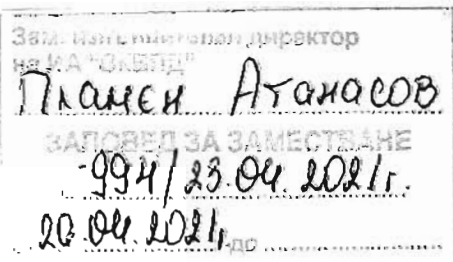 Зам. изпълнителен директор
на ИА "ОКБПД"
Пламен Атанасов
ЗАПОВЕД ЗА ЗАМЕСТВАНЕ
994/23.04.2021г.
20.04.2021г. до